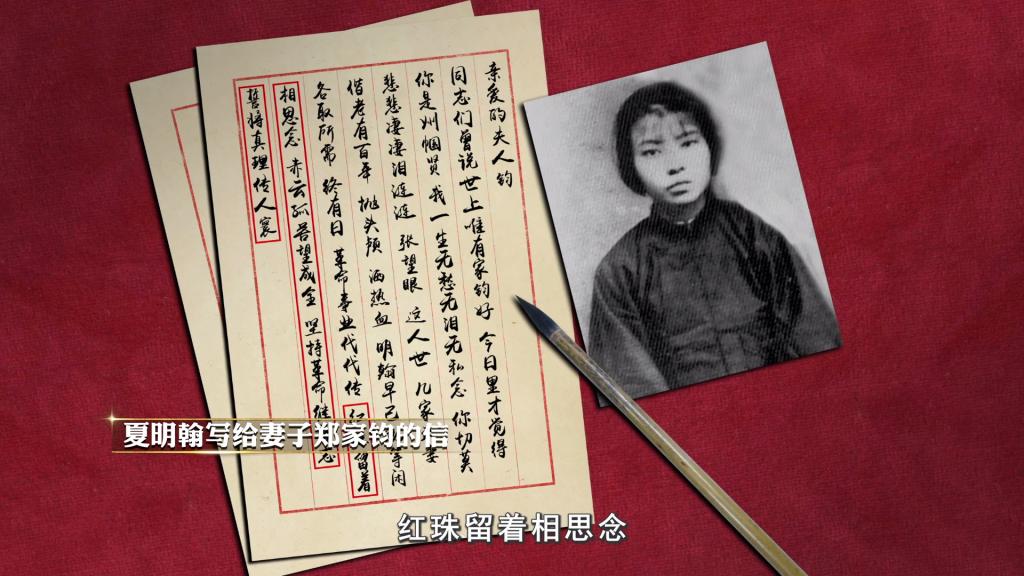 亲爱的夫人钧
同志们曾说世上唯有家钧好 今日里才觉得
你是巾帼贤 我一生无愁无泪无私念 你切莫
悲悲凄凄泪涟涟 张望眼 这人世 几家妻
偕老有百年 抛头颅 洒热血 明翰早已等闲
各取所需 终有日 革命事业代代传 红留着
相思念 赤云孤苔望成全 坚持革命继志
誓将真理传人寰
夏明翰写给妻子郑家钧的信
红珠留着相思念